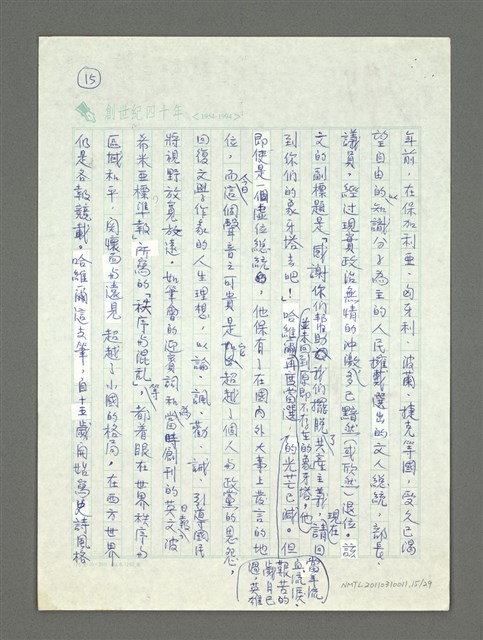 15
創世紀四十年 <1954-1994>
年前，在保加利亞、匈牙利、波蘭、捷克等國，受久已渴
望自由的知識分子為主的人民擁戴選出的文人總統，部長、
議員。經过現實政治無情的沖激多已黯然（或欣然）退位。該
文的副標題是「感謝你們幫助我們擺脫了共產主義，現在請回
到你們的象牙塔去吧！」哈維爾再度當選，並未回到原即不存在的象牙塔，他的光芒已減。但
當年流血流淚、艱苦的歲月已過，英雄
即使是一個虛位總統，他保有了在國內外大事上發言的地
位，而這個聲音之可貴是它超越了個人与政黨的恩怨，
回復文學作家的人生理想，以論、諷、勸、誡、引導國民
將視野放寬放遠。如筆會的迎賓詞和為當時創刊的英文波
希米亞標準報」所寫的「秩序与混乱」等，都着眼在世界秩序与
日報
區域和平，関懷面与遠見超越了小國的格局。在西方世界
仍是各報競載。哈維爾這支筆，自十五歲開始寫史詩風格
NMTL20110310011,15/29